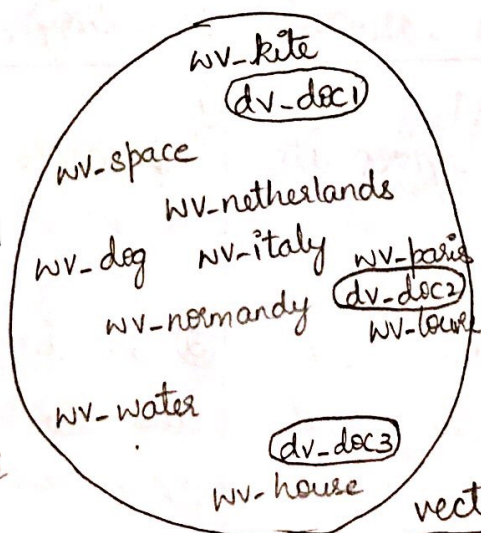 wv-kite
dv-doc1
wv-space
wv-netherlands
wv-dog wv-italy wv-paris
dv-doc2
wv-normandy
wv-louvre
wv-water
dv-doc3
wv-house
vect